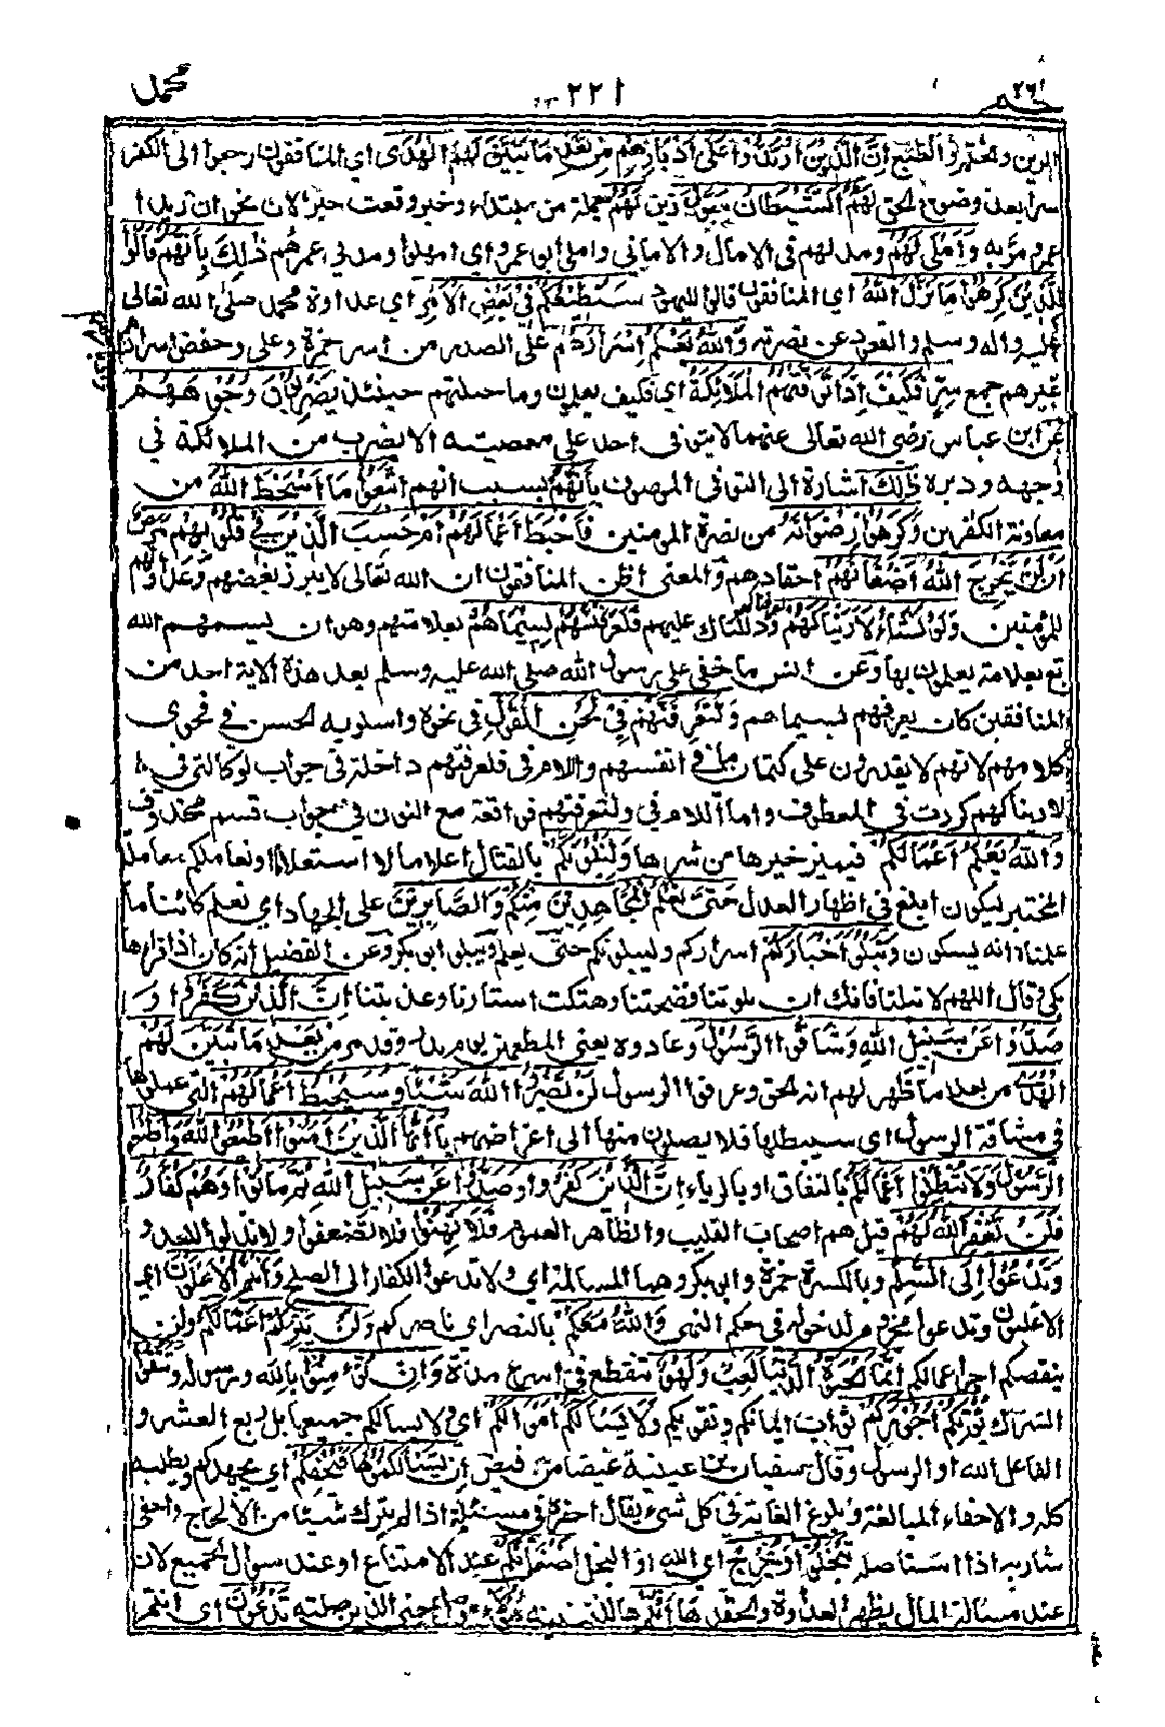 حم ٢٦
١٢٢١
محمد
الرين والختم والطبع إِنَّ الَّذِيْنَ ارْتَدُّوْا عَلَى أَدْبَارِهِمْ مِنْ بَعْدِ مَا تَبَيَّنَ لَهُمُ الْهُدَى اي المنافقون رجعوا الى الكفر
سرا بعد وضوح الحق لَهُمُ الشَّيْطَانُ سَوَّلَ زين لَهُمْ جملة من مبتداء وخبر وقعت خبرا لان نحو ان زيدا
عمرو مر به وَأَمْلَى لَهُمْ ومد لهم في الامال والاماني واملي ابو عمرو اي امهلوا ومد في عمرهم ذٰلِكَ بِأَنَّهُمْ قَالُوْا
لِلَّذِيْنَ كَرِهُوْا مَا نَزَّلَ اللهُ اي المنافقون قالوا لليهود سَنُطِيْعُكُمْ فِيْ بَعْضِ الْأَمْرِ اي عداوة محمد صلى الله تعالى
عليه واله وسلم والقعود عن نصرته وَاللهُ يَعْلَمُ إِسْرَارَهُمْ على المصدر من اسر حمزة وعلي وحفص اسرارهم
غيرهم جمع سر فَكَيْفَ إِذَا تَوَفَّتْهُمُ الْمَلَائِكَةُ اي فكيف يعملون وما حيلتهم حينئذ يَضْرِبُوْنَ وُجُوْهَهُمْ
عن ابن عباس رضي الله تعالى عنهما لا يتوفى احد على معصيته الا يضرب من الملائكة في
وجهه ودبره ذٰلِكَ اشارة الى التوفي الموصوف بِأَنَّهُمُ بسبب انهم اتَّبَعُوْا مَا أَسْخَطَ اللهَ من
معاونة الكفرين وَكَرِهُوْا رِضْوَانَهُ من نصرة المومنين فَأَحْبَطَ أَعْمَالَهُمْ أَمْ حَسِبَ الَّذِيْنَ فِيْ قُلُوْبِهِمْ مَرَضٌ
أَنْ لَّنْ يُّخْرِجَ اللهُ أَضْغَانَهُمْ احقادهم والمعنى اظن المنافقون ان الله تعالى لا يبرز بغضهم وعداوتهم
للمؤمنين وَلَوْ نَشَاءُ لَأَرَيْنَاكَهُمْ ودللناك عليهم فَلَعَرَفْتَهُمْ بِسِيْمَاهُمْ بعلامتهم وهو ان يسمهم الله
تع بعلامة يعلمون بها وعن انس ما خفي على رسول الله صلى الله عليه وسلم بعد هذه الاية احد من
المنافقين كان يعرفهم بسيماهم وَلَتَعْرِفَنَّهُمْ فِيْ لَحْنِ الْقَوْلِ في نحوه واسلوبه الحسن في فحوى
كلامهم لانهم لا يقدرون على كتمان ما في انفسهم واللام في فلعرفتهم داخلة في جواب لو كالتي في
لاريناكهم كررت في المعطوف واما اللام في ولتعرفنهم فواقعة مع النون في جواب قسم محذوف
وَاللهُ يَعْلَمُ أَعْمَالَكُمْ فيميز خيرها من شرها وَلَنَبْلُوَنَّكُمْ بالقتال اعلاما لا استعلاما او نعاملكم معاملة
المختبر ليكون ابلغ في اظهار العدل حَتَّى نَعْلَمَ الْمُجَاهِدِيْنَ مِنْكُمْ وَالصَّابِرِيْنَ على الجهاد اي نعلم كائنا ما
علمناه انه يسكون وَنَبْلُوَ أَخْبَارَكُمْ اسراركم وليبلونكم حتى يعلم ويبلو ابو بكر وعن الفضيل انه كان اذا قراها
بكى وقال اللهم لا تبلنا فانك ان بلوتنا فضحتنا وهتكت استارنا وعذبتنا إِنَّ الَّذِيْنَ كَفَرُوْا وَ
صَدُّوْا عَنْ سَبِيْلِ اللهِ وَشَاقُّوا الرَّسُوْلَ وعادوه يعني المطعمين يوم بدر وقد مر مِنْ بَعْدِ مَا تَبَيَّنَ لَهُمُ
الْهُدَى من بعد ما ظهر لهم انه الحق وعرفوا الرسول لَنْ يَّضُرُّوا اللهَ شَيْئًا وَسَيُحْبِطُ أَعْمَالَهُمْ التي عملوها
في مشاقة الرسول اي سيبطلها فلا يصلون منها الى اغراضهم يٰأَيُّهَا الَّذِيْنَ آمَنُوْا أَطِيْعُوا اللهَ وَأَطِيْعُوا
الرَّسُوْلَ وَلَا تُبْطِلُوْا أَعْمَالَكُمْ بالنفاق او بالرياء إِنَّ الَّذِيْنَ كَفَرُوْا وَصَدُّوْا عَنْ سَبِيْلِ اللهِ ثُمَّ مَاتُوْا وَهُمْ كُفَّارٌ
فَلَنْ يَّغْفِرَ اللهُ لَهُمْ قيل هم اصحاب القليب والظاهر العموم فَلَا تَهِنُوْا فلا تضعفوا ولا تذلوا للعدو
وَتَدْعُوْا إِلَى السَّلْمِ وبالكسر حمزة وابو بكر وهما المسالمة اي ولا تدعوا الكفار الى الصلح وَأَنْتُمُ الْأَعْلَوْنَ اي
الاغلبون وتدعوا مجزوم لدخوله في حكم النهي وَاللهُ مَعَكُمْ بالنصر اي ناصركم وَلَنْ يَّتِرَكُمْ أَعْمَالَكُمْ ولن
ينقصكم اجر اعمالكم إِنَّمَا الْحَيٰوةُ الدُّنْيَا لَعِبٌ وَلَهْوٌ تنقطع في اسرع مدة وَإِنْ تُؤْمِنُوْا بالله ورسوله وَتَتَّقُوْا
الشراك يُؤْتِكُمْ أُجُوْرَكُمْ ثواب ايمانكم وتقويكم وَلَا يَسْأَلْكُمْ أَمْوَالَكُمْ اي ولا يسالكم جميعها بل ربع العشر و
الفاعل الله او الرسول وقال سفيان بن عيينة غيضا من فيض إِنْ يَّسْأَلْكُمُوْهَا فَيُحْفِكُمْ اي يجهدكم ويطلبه
كله والاحفاء المبالغة وبلوغ الغاية في كل شيء يقال احفاه في مسئلة اذا لم يترك شيئا من الالحاح واحفى
شاربه اذا استاصله تَبْخَلُوْا وَيُخْرِجْ اي الله او البخل أَضْغَانَكُمْ عند الامتناع او عند سوال الجميع لان
عند مسئالة المال يظهر العداوة والحقد هَا أَنْتُمْ ها للتنبيه هٰؤُلَاءِ موصول بمعنى الذين صلته تُدْعَوْنَ اي انتم